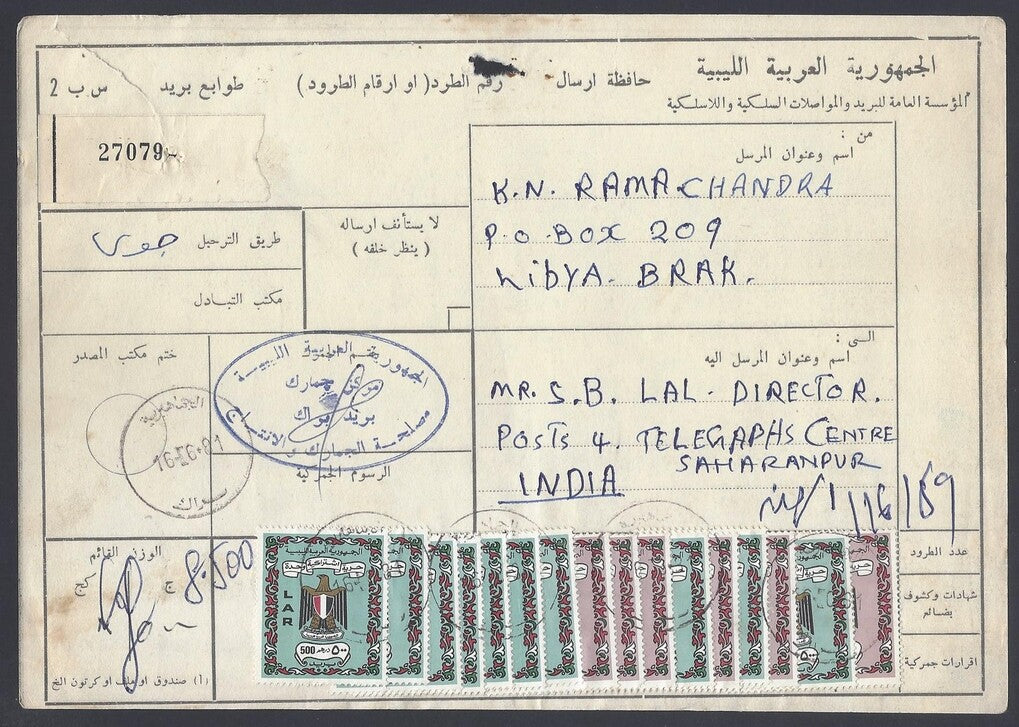 الجمهورية العربية الليبية
المؤسسة العامة للبريد والمواصلات السلكية واللاسلكية
حافظة ارسال
رقم الطرد( او ارقام الطرود )
طوابع بريد
س ب 2
27079
من :
اسم وعنوان المرسل
K.N. RAMA CHANDRA
P.O. BOX 209
LIBYA. BRAK.
لا يستأنف ارساله
( ينظر خلفه )
طريق الترحيل
مكتب التبادل
الى :
اسم وعنوان المرسل اليه
MR. S.B. LAL. DIRECTOR.
POSTS 4. TELEGAPHS CENTRE
SAHARANPUR
INDIA
ختم مكتب المصدر
الجمهورية العربية الليبية
جمارك
بريد براك
مصلحة الجمارك و الانتاج
الرسوم الجمركية
براك
الوزن القائم
كج
ج
8.500
عدد الطرود
شهادات وكشوف
بضائع
اقرارات جمركية
(1) صندوق او ملف او كرتون الخ
الجمهورية العربية الليبية
حرية اشتراكية وحدة
LAR
500 درهم ٥٠٠
بريد